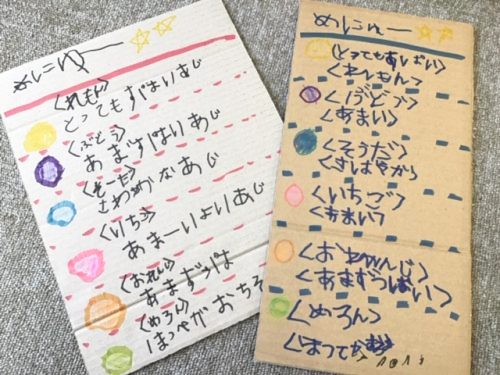 めにゅー
<れもん>
とってもすぱいあじ
<ぶどう>
あまずぱいあじ
<そーだ>
さわやかなあじ
<いちご>
あまーいよいあじ
<おれん>
あまずっぱ
<めろん>
ほっぺがおちそ
めにゅー
<とってもすぱい>
<れもん>
<ぶどう>
<あまい>
<そうだ>
<さしはやから
<いちご>
<あまい>
<おれんじ>
<あまずっぱい>
<めろん>